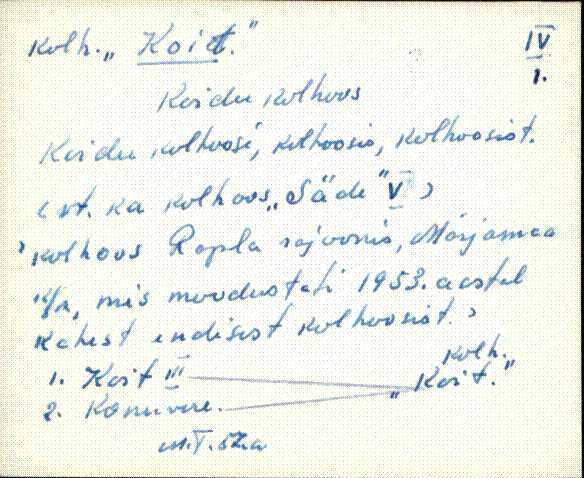 kolh. „Koit."
IV
1.
Koidu kolhoos
Koidu kolhoosi, kolhoosis, kolhoosist.
(vt. ka kolhoos „Säde" V)
kolhoos Rapla rajoonis, Märjamaa
k/n, mis moodustati 1953. aastal
kahest endisest kolhoosist.
1. Koit III
kolh.
„Koit."
2. Konuvere.